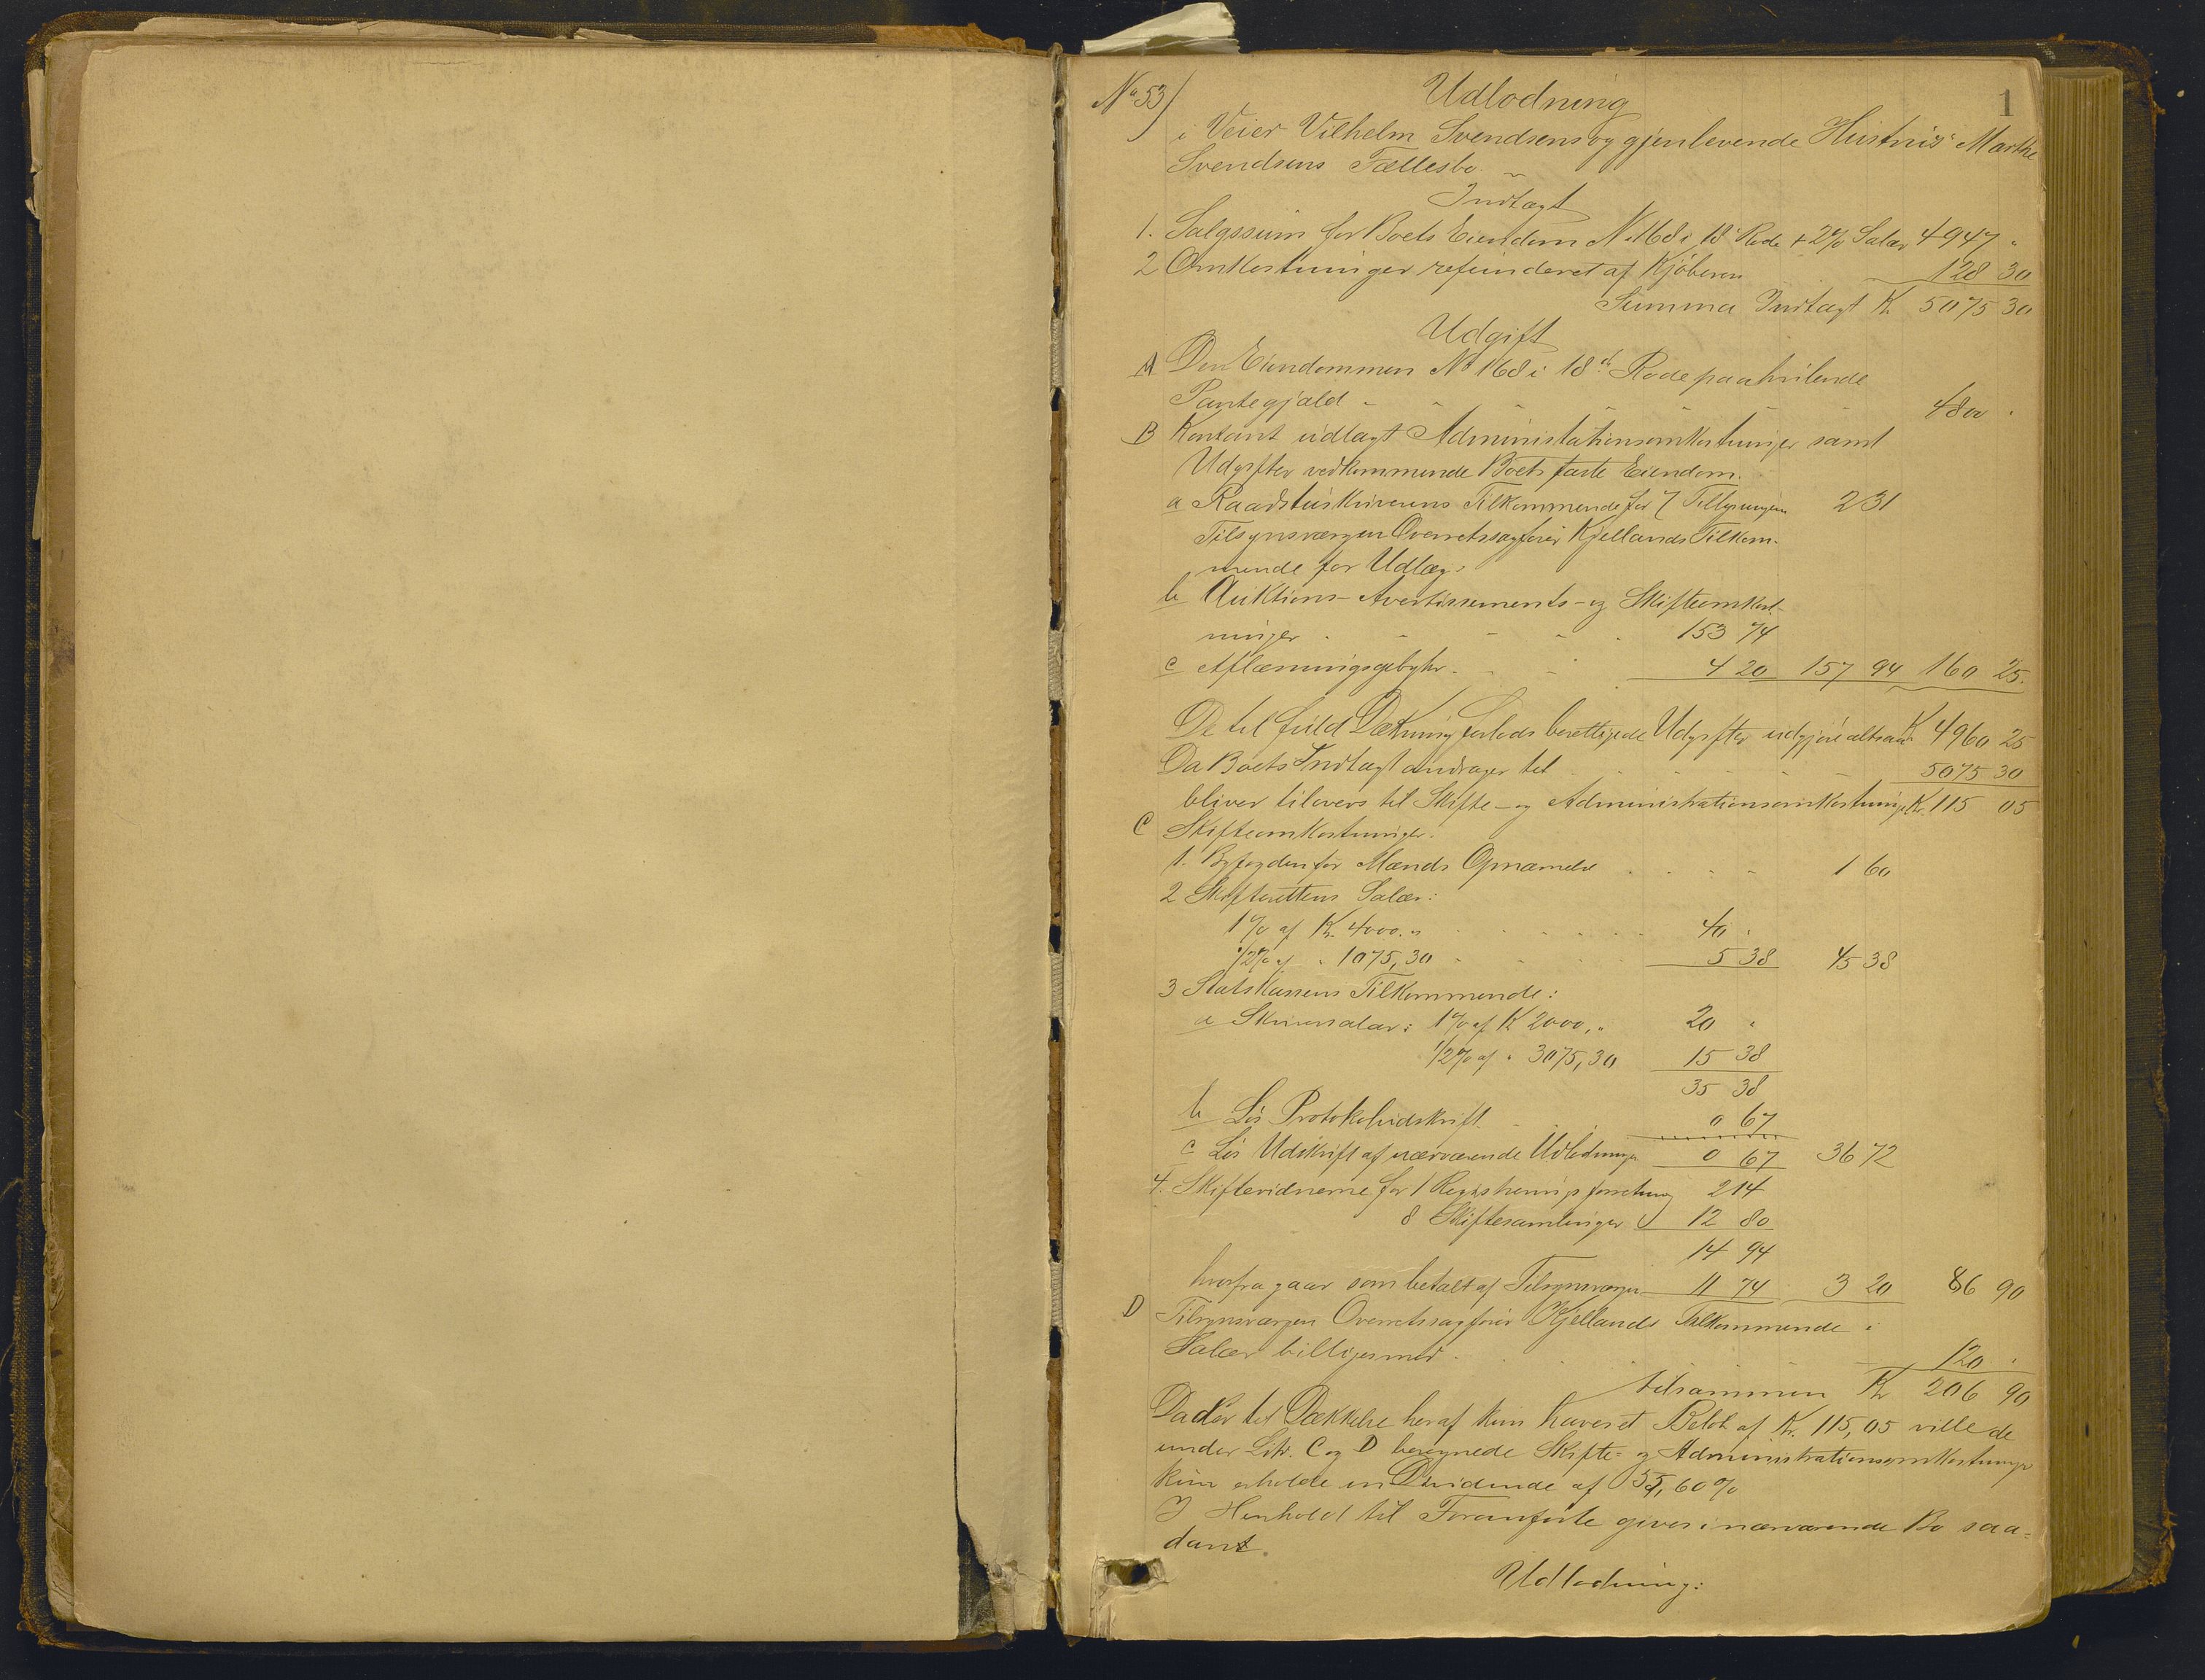 1
No 53)
Udlodning
i Veier Vilhelm Svendsens og gjenlevende Hustrus Marthe
Svendsens Fællesbo
Indtægt
1. Salgssum for Boets Eiendom No 168 i 18d Rode + 2% Salær 4947 "
2 Omkostninger refunderet af Kjøberen 128 30
Summa Indtægt Kr. 5075 30
Udgift
A Den Eiendommen No 168 i 18d Rode paahvilende
Pantegjæld - - - - - - 4800 "
B Kontant udlagt Administationsomkostninger samt
Udgifter vedkommende Boets faste Eiendom.
a Raadstuskriverens Tilkommende for 7 Tillysninger 2 31
Tilsynsværgen Overretssagfører Kjellands Tilkom-
mende for Udlæg:
b Auktions- Avertissements- og Skifteomkost-
ninger - - - - 153 74
c Aflæsningsgebyhr - - - 4 20 157 94 160 25.
De til fuld Dækning forlods berettigede Udgifter udgjøre altsaa Kr 4960 25
Da Boets Indtægt andrager til 5075 30
bliver tilovers til Skifte- og Administrationsomkostninger Kr. 115 05
C Skifteomkostninger.
1. Byfogden for Mænds Opnævnelse 1 60
2 Skifterettens Salær:
1% af Kr. 4000. " 40 "
1/2% af " 1075,30 5 38 45 38
3 Statskassens Tilkommende:
a Skriversalær: 1% af Kr 2000, " 20 "
1/2% af " 3075,30 15 38
35 38
b Løs Protokoludskrift 0 67
c Løs Udskrift af nærværende Udlodninger 0 67 36 72
4. Skiftevidnerne for 1 Registreringsforretning 2 14
8 Skiftesamlinger 12 80
14 94
hvorfra gaar som betalt af Tilsynsværgen 11 74 3 20 86 90
D Tilsynsværgen Overretssagfører Kjellands Tilkommende i
Salær billiges med 120 "
tilsammen Kr 206 90
Da der til Dækkelse heraf kun haves et Beløb af Kr. 115,05 ville de
under Litr. C og D beregnede Skifte- og Administrationsomkostninger
kun erholde en Dividende af 55,60%
I Henhold til Foranførte gives i nærværende Bo saa-
dant
Udlodning: